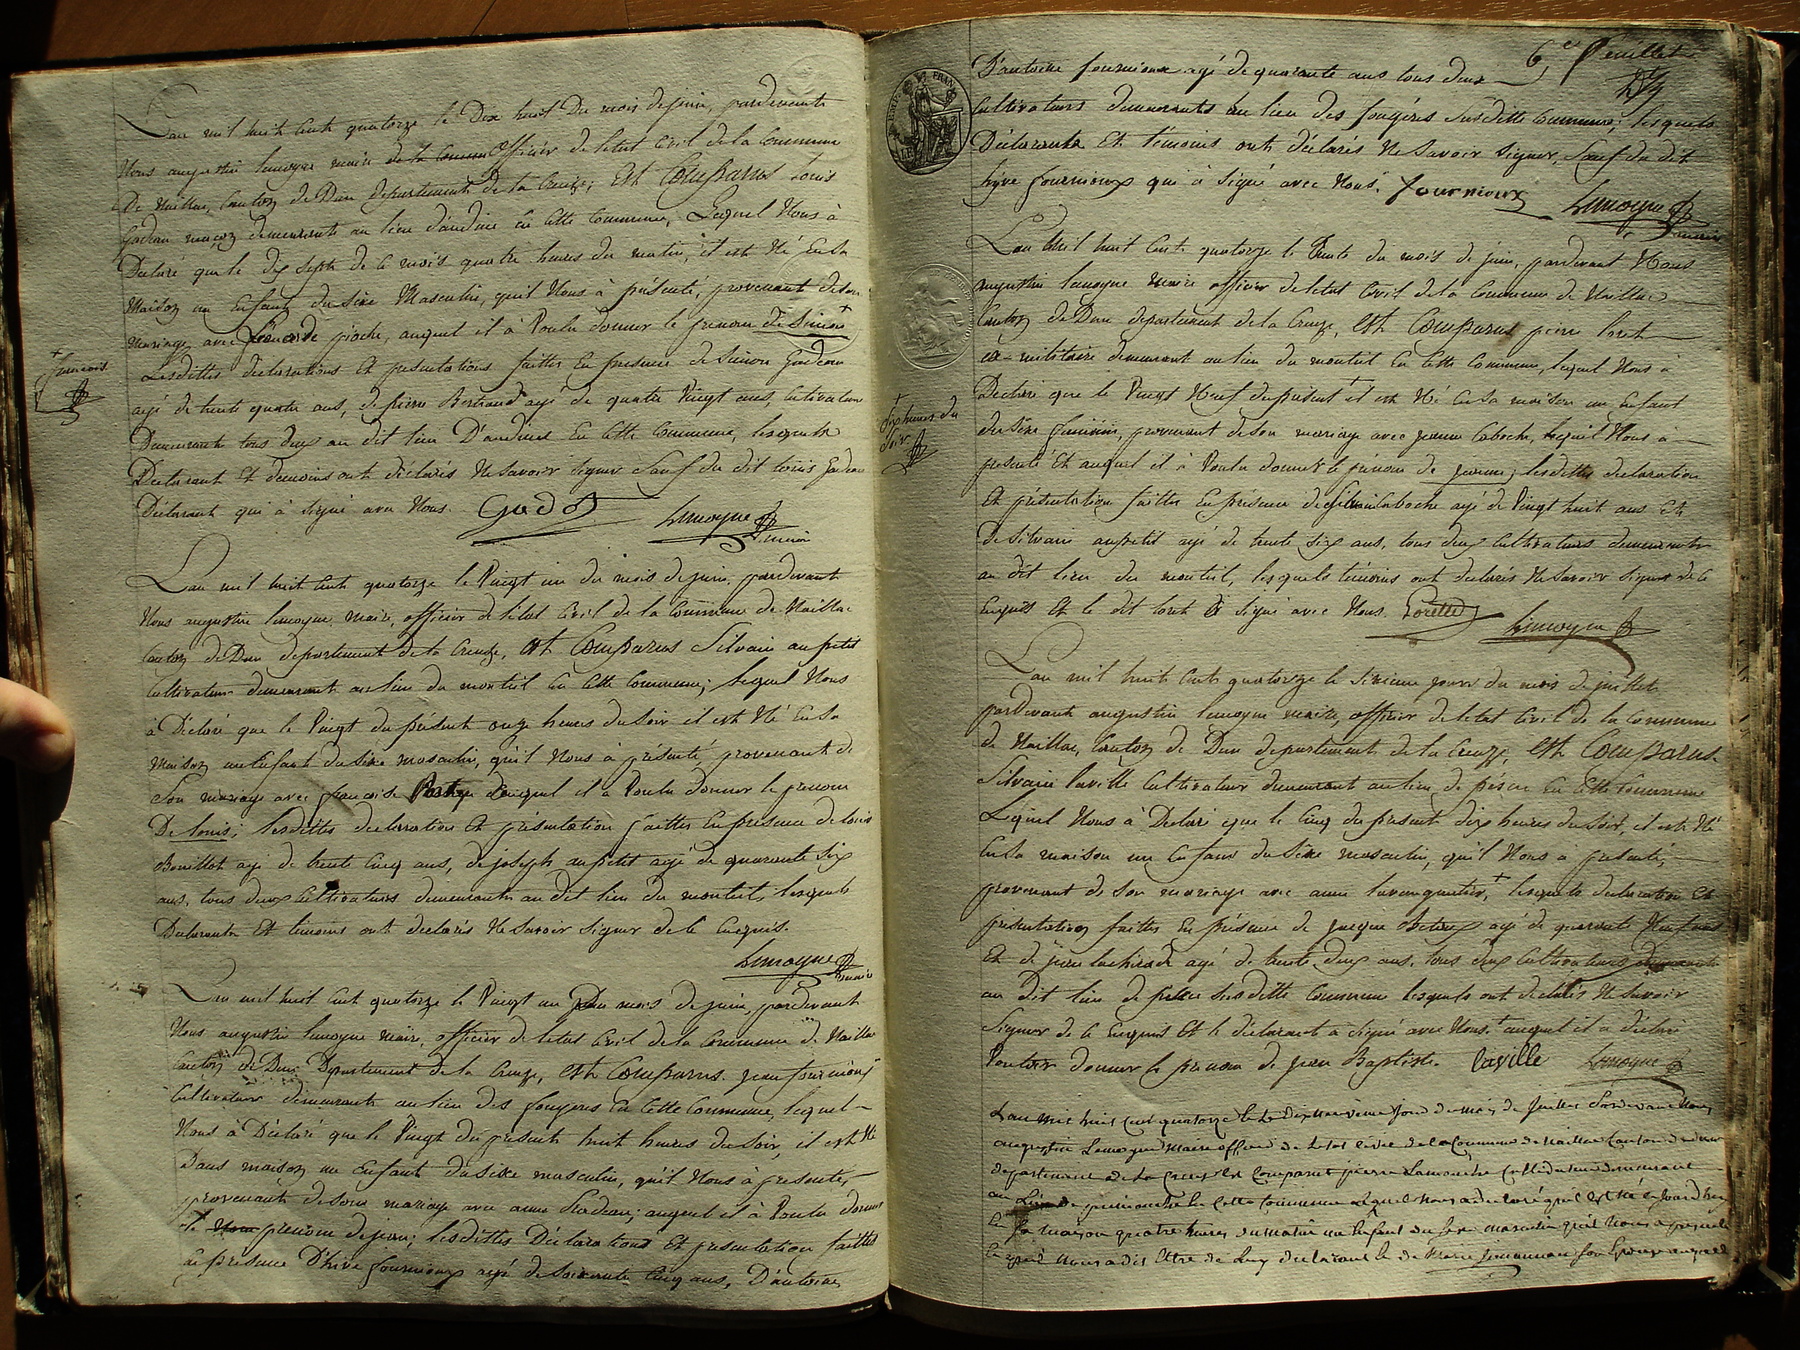 L'an mil huit Cent quatorze le Dix huit Du mois de juin, pardevant
Nous augustin lemoyne maire de la Commu Officier de letat Civil de la Commune
De Naillac, Canton de Dun departement de la Creuze; Est Comparus Louis
Gadeau maçon demeurant au lieu d'andine en Cette Commune, Lequel Nous à
Declaré que le dix septe de ce mois quatre heures du matin, il est Né En Sa
Maison un Enfant du Sexe Masculin, quil Nous à présenté, provenant de son
mariage avec pioche, auquel il à Voulu donner le prenom de Simon +
+ françois
Lesdittes declarations et presentations faittes En presence de Simon Gadeau
agé de trente quatre ans, de pierre Bertrand agé de quatre Vingt ans, Cultivateurs
Demeurants tous deux au dit lieu D'andine En Cette Commune, lesquels
Declarant Et temoins ont déclarés Ne Savoir Signer Sauf du dit Louis Gadeau
Déclarant qui à Signé avec Nous. Lemoyne
maire
L'an mil huit Cent quatorze le Vingt un du mois de juin, pardevant
Nous augustin lemoyne maire, officier de letat Civil de la Commune de Naillac
Canton de Dun departement de la Creuze, est Comparus Silvain aupetit
Cultivateur demeurant au lieu du monteil En Cette Commune; lequel Nous
à Déclaré que le Vingt du présent onze heures du Soir il est Né En Sa
Maison un Enfant du Sexe masculin, qu'il Nous à présenté, provenant de
Son mariage avec françoise auquel il à Voulu donner le prenom
De Louis; lesdittes declaration Et présentation faittes En presence de Louis
Bouillot agé de trente Cinq ans, de joseph aupetit agé de quarante Six
ans, tous deux Cultivateurs demeurants au dit lieu du monteil, lesquels
Declarants Et temoins ont declarés Ne Savoir Signer de Ce Enquis.
Lemoyne
maire
L'an mil huit Cent quatorze le Vingt un Du mois de juin, pardevant
Nous augustin lemoyne maire, officier de letat Civil de la Commune de Naillac
Canton de Dun Departement de la Creuze, est Comparus jean fournioux
Cultivateur demeurant au lieu des fougeres En Cette Commune, lequel
Nous à Déclaré que le Vingt du present huit heures du Soir, il est Né
Dans maison un Enfant du Sexe masculin, qu'il Nous à presenté,
provenant de son mariage avec anne ; auquel il à Voulu donner
le Nom prenom de jean; lesdittes Déclarations Et presentation faittes
En presence D'hive fournioux agé de Soixante Cinq ans, D'antoine
6e Feuillet
D'antoine fournioux agé de quarante ans tous deux
Cultivateurs demeurants au lieu des fougéres Susditte Commune; lesquels
Déclarants Et témoins ont déclarés Ne Savoir Signer, Sauf du dit
hive fournioux qui à Signé avec Nous. fournioux
Lemoyne
maire
L'an Mil huit Cent quatorze le Trente du mois de juin, pardevant Nous
augustin lemoyne maire officier de letat Civil de la Commune de Naillac
Canton de Dun departement de la Creuze, est Comparus pierre loret
ex-militaire demeurant au lieu du monteil En Cette Commune, lequel Nous à
Declaré que le Vingt Neuf du présent + il est Né En Sa maison un Enfant
+ Six heures du
Soir
du Sexe feminin, provenant de Son mariage avec jeanne Caboche, lequel Nous à
presenté Et auquel il à Voulu donner le prénom de jeanne; lesdittes declaration
Et présentation faittes En presence de Silvain Caboche agé de Vingt huit ans Et
de Silvain aupetit agé de trente Six ans, tous deux Cultivateurs demeurants
au dit lieu du monteil, lesquels témoins ont declarés Ne Savoir Signer de Ce
Enquis Et le dit loret à Signé avec Nous. Lemoyne
L'an mil huit Cent quatorze le Sixieme jour du mois de juillet
pardevant augustin lemoyne maire, officier de letat Civil de la Commune
de Naillac, Canton de Dun departement de la Creuze, est Comparus
Silvain laville Cultivateur demeurant au lieu de En Cette Commune
Lequel Nous à Declaré que le Cinq du present dix heures du Soir, il est Né
En Sa maison un Enfant du Sexe masculin, qu'il Nous à presenté,
provenant de Son mariage avec anne + lesquels declaration Et
présentation faittes En présence de jacque agé de quarante Neuf ans
Et de jean agé de trente deux ans, tous deux Cultivateurs demeurants
au dit lieu de Susditte Commune lesquels ont declarés Ne Savoir
Signer de Ce Enquis Et le déclarant à Signé avec Nous. + auquel il a déclaré
Vouloir donner le prenom de jean Baptiste. laville Lemoyne
L'an mil huit Cent quatorze le dix neuvieme jour du mois de Juillet Pardevant Nous
augustin Lemoyne Maire officier de letat Civil de la Commune de Naillac Canton de Dun
departement de la Creuze est Comparut pierre Cultivateur demeurant
au Lieu de En Cette Commune Lequel Nous a declaré quil est Né aujourdhuy
En Sa maison quatre heures du Matin un Enfant du Sexe masculin quil Nous a presenté
Nous a dit Etre de Luy declarant Et de Marie Son Epouse